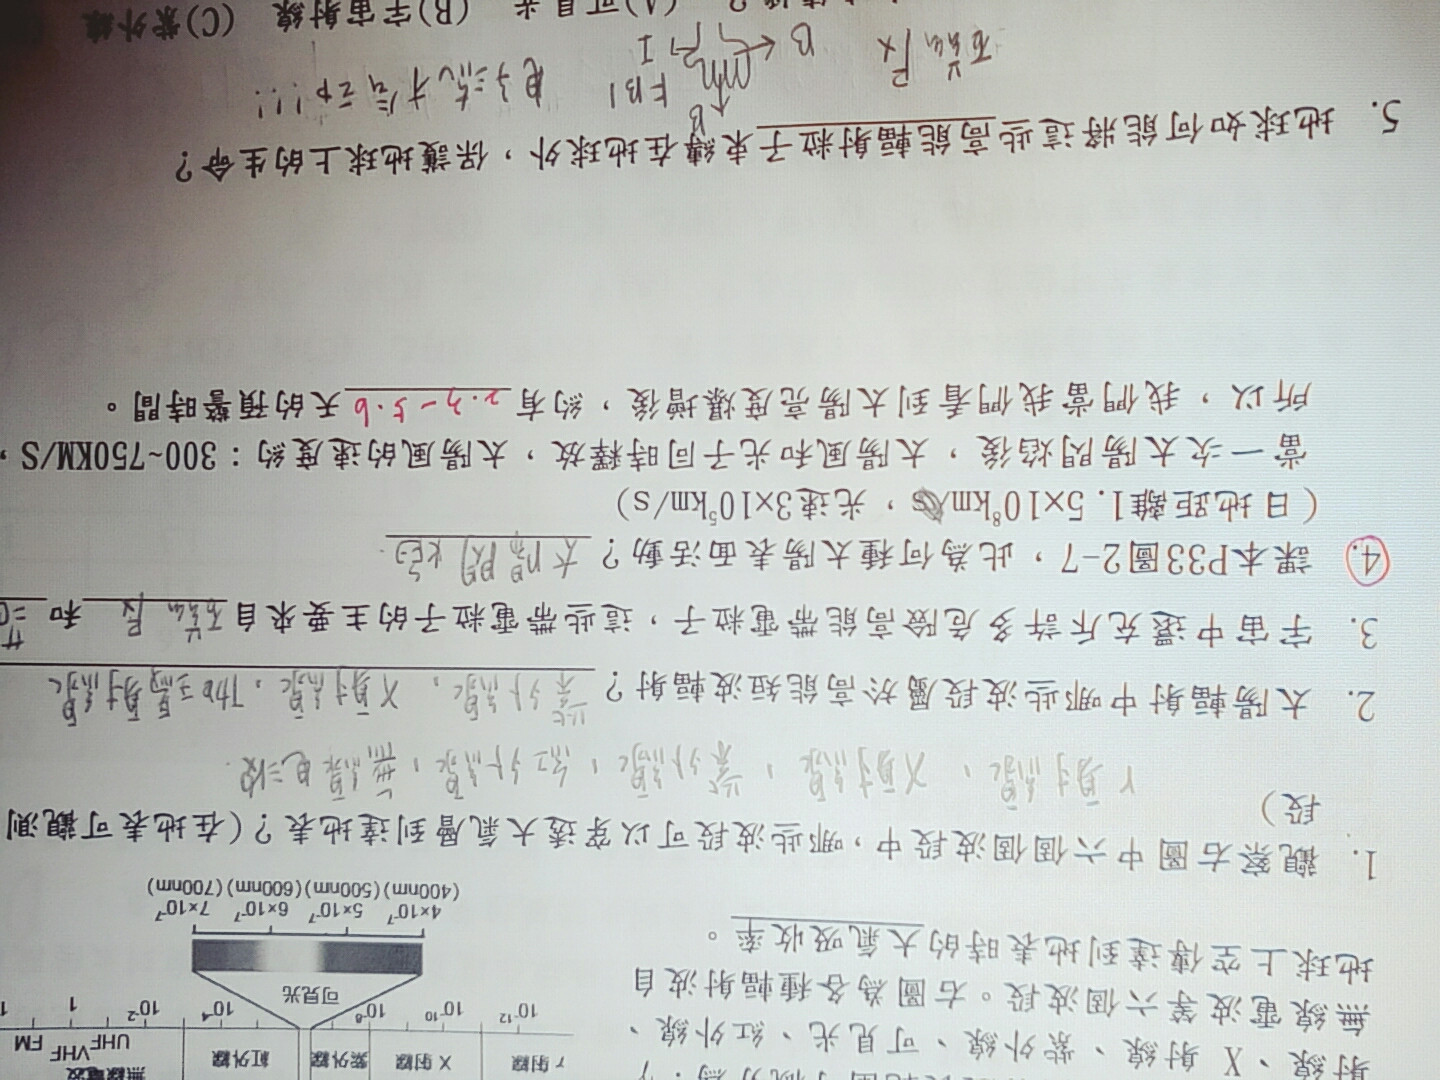 射線、X 射線、紫外線、可見光、紅外線、
無線電波等六個波段。右圖為各種輻射波自
地球上空傳達到地表時的大氣吸收率。
γ射線 X 射線 紫外線 紅外線 無線電波
UHF VHF FM
10⁻¹² 10⁻¹⁰ 10⁻⁸ 10⁻⁴ 10⁻² 1
可見光
4×10⁻⁷ 5×10⁻⁷ 6×10⁻⁷ 7×10⁻⁷
(400nm) (500nm) (600nm) (700nm)
1. 觀察右圖中六個個波段中,哪些波段可以穿透大氣層到達地表?(在地表可觀測
段)
r射線、X射線、紫外線、紅外線、無線電波
2. 太陽輻射中哪些波段屬於高能短波輻射? 紫外線、X射線、
3. 宇宙中還充斥許多危險高能帶電粒子,這些帶電粒子的主要來自 和
4. 課本P33圖2-7,此為何種太陽表面活動? 太陽閃焰
(日地距離1.5×10⁸km/s,光速3×10⁵km/s)
當一次太陽閃焰後,太陽風和光子同時釋放,太陽風的速度約:300~750KM/S,
所以,我們當我們看到太陽亮度爆增後,約有 2.3-5.6 天的預警時間。
5. 地球如何能將這些高能輻射粒子束縛在地球外,保護地球上的生命?
B
B FBI
I
(A)可見光 (B)宇宙射線 (C)紫外線